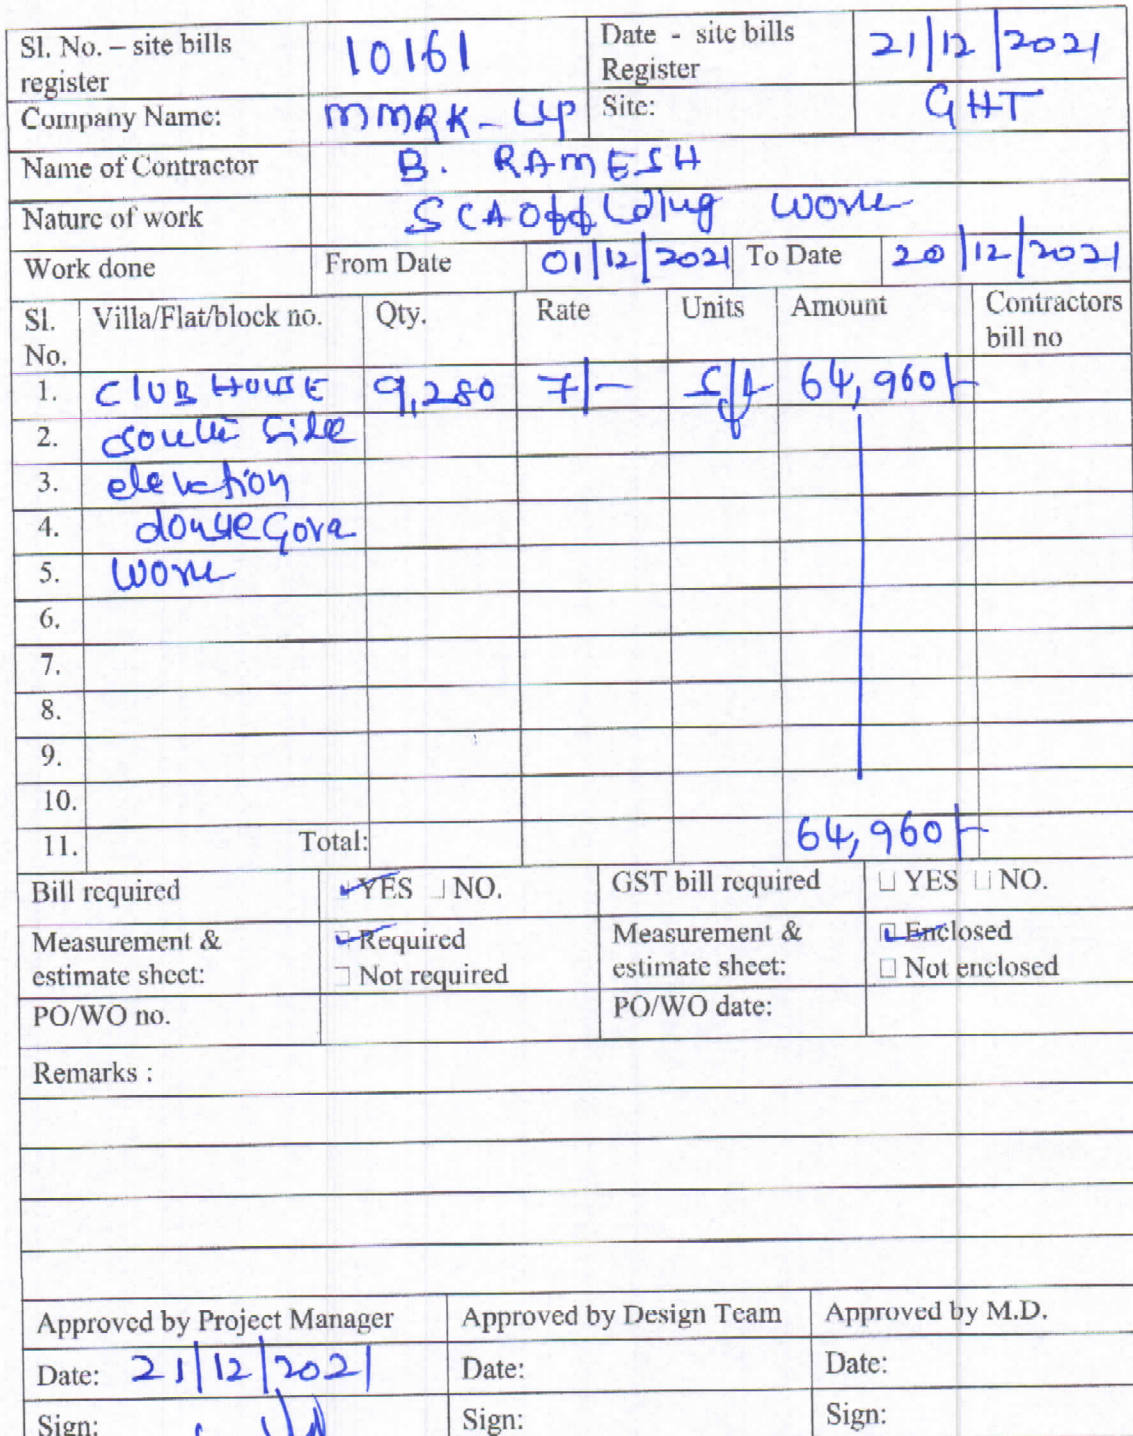 Sl. No. – site bills register 10161 Date - site bills Register 21/12/2021
Company Name: MMRK-LLP Site: GHT
Name of Contractor B. RAMESH
Nature of work SCAOffolding work
Work done From Date 01/12/2021 To Date 20/12/2021
Sl. No. Villa/Flat/block no. Qty. Rate Units Amount Contractors bill no
1. CLUB HOUSE 9,280 7/- sft 64,960/-
2. south side
3. elevation
4.
5. work
6.
7.
8.
9.
10.
11. Total: 64,960/-
Bill required YES NO. GST bill required YES NO.
Measurement & estimate sheet: Required Not required Measurement & estimate sheet: Enclosed Not enclosed
PO/WO no. PO/WO date:
Remarks :
Approved by Project Manager Approved by Design Team Approved by M.D.
Date: 21/12/2021 Date: Date:
Sign: Sign: Sign: